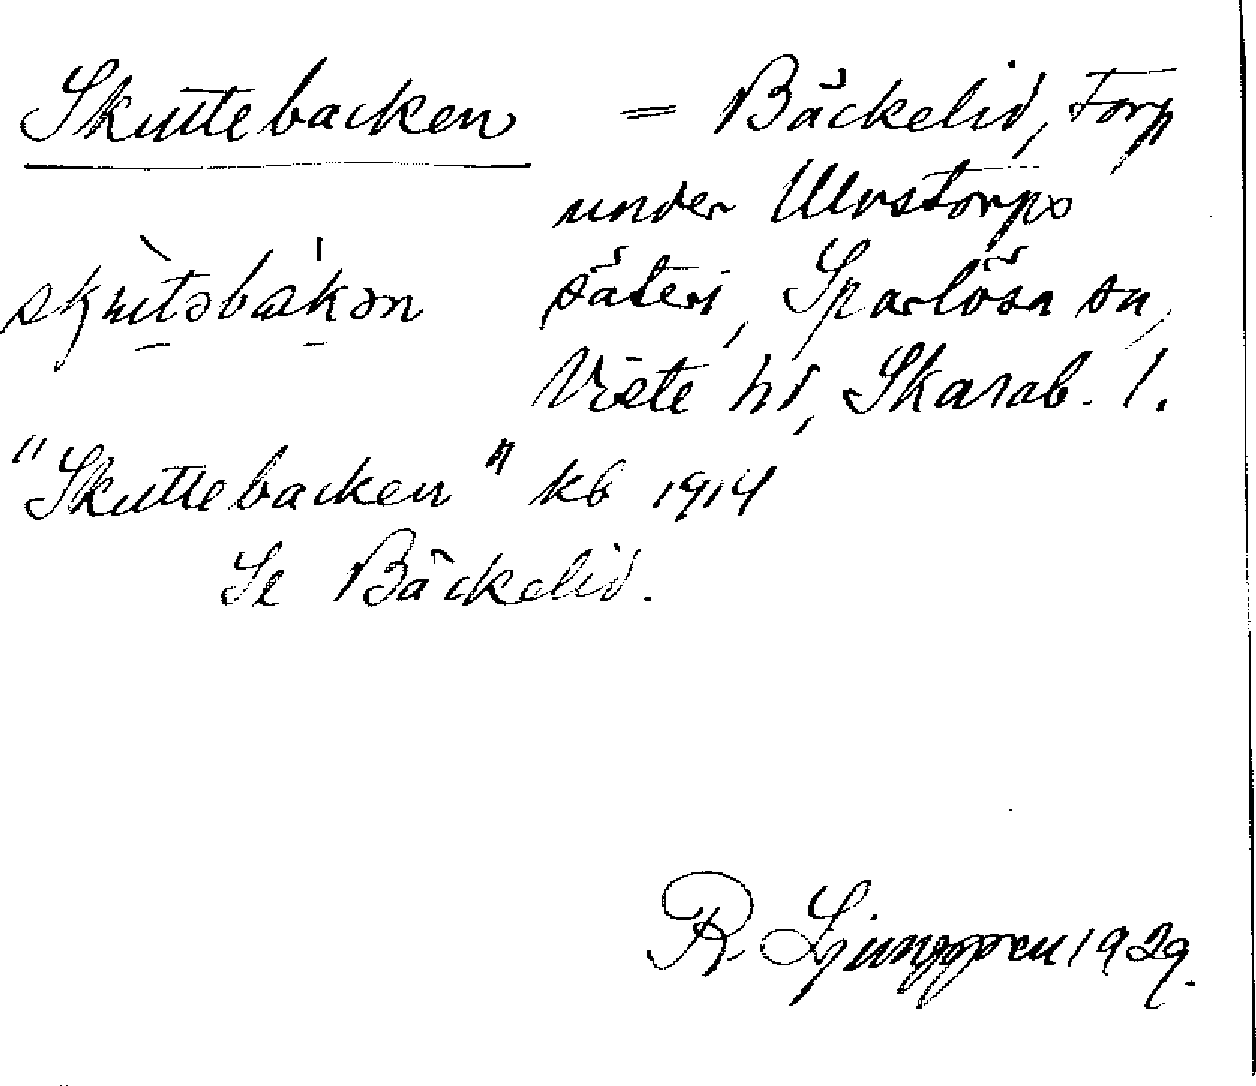 Skuttebacken = Bäckelid, torp
under Ulvstorps
skùtəbákən säteri, Sparlösa sn,
Viste hd, Skarab. l.
"Skuttebacken" kb 1914
Se Bäckelid.
R. Ljunggren 1929.